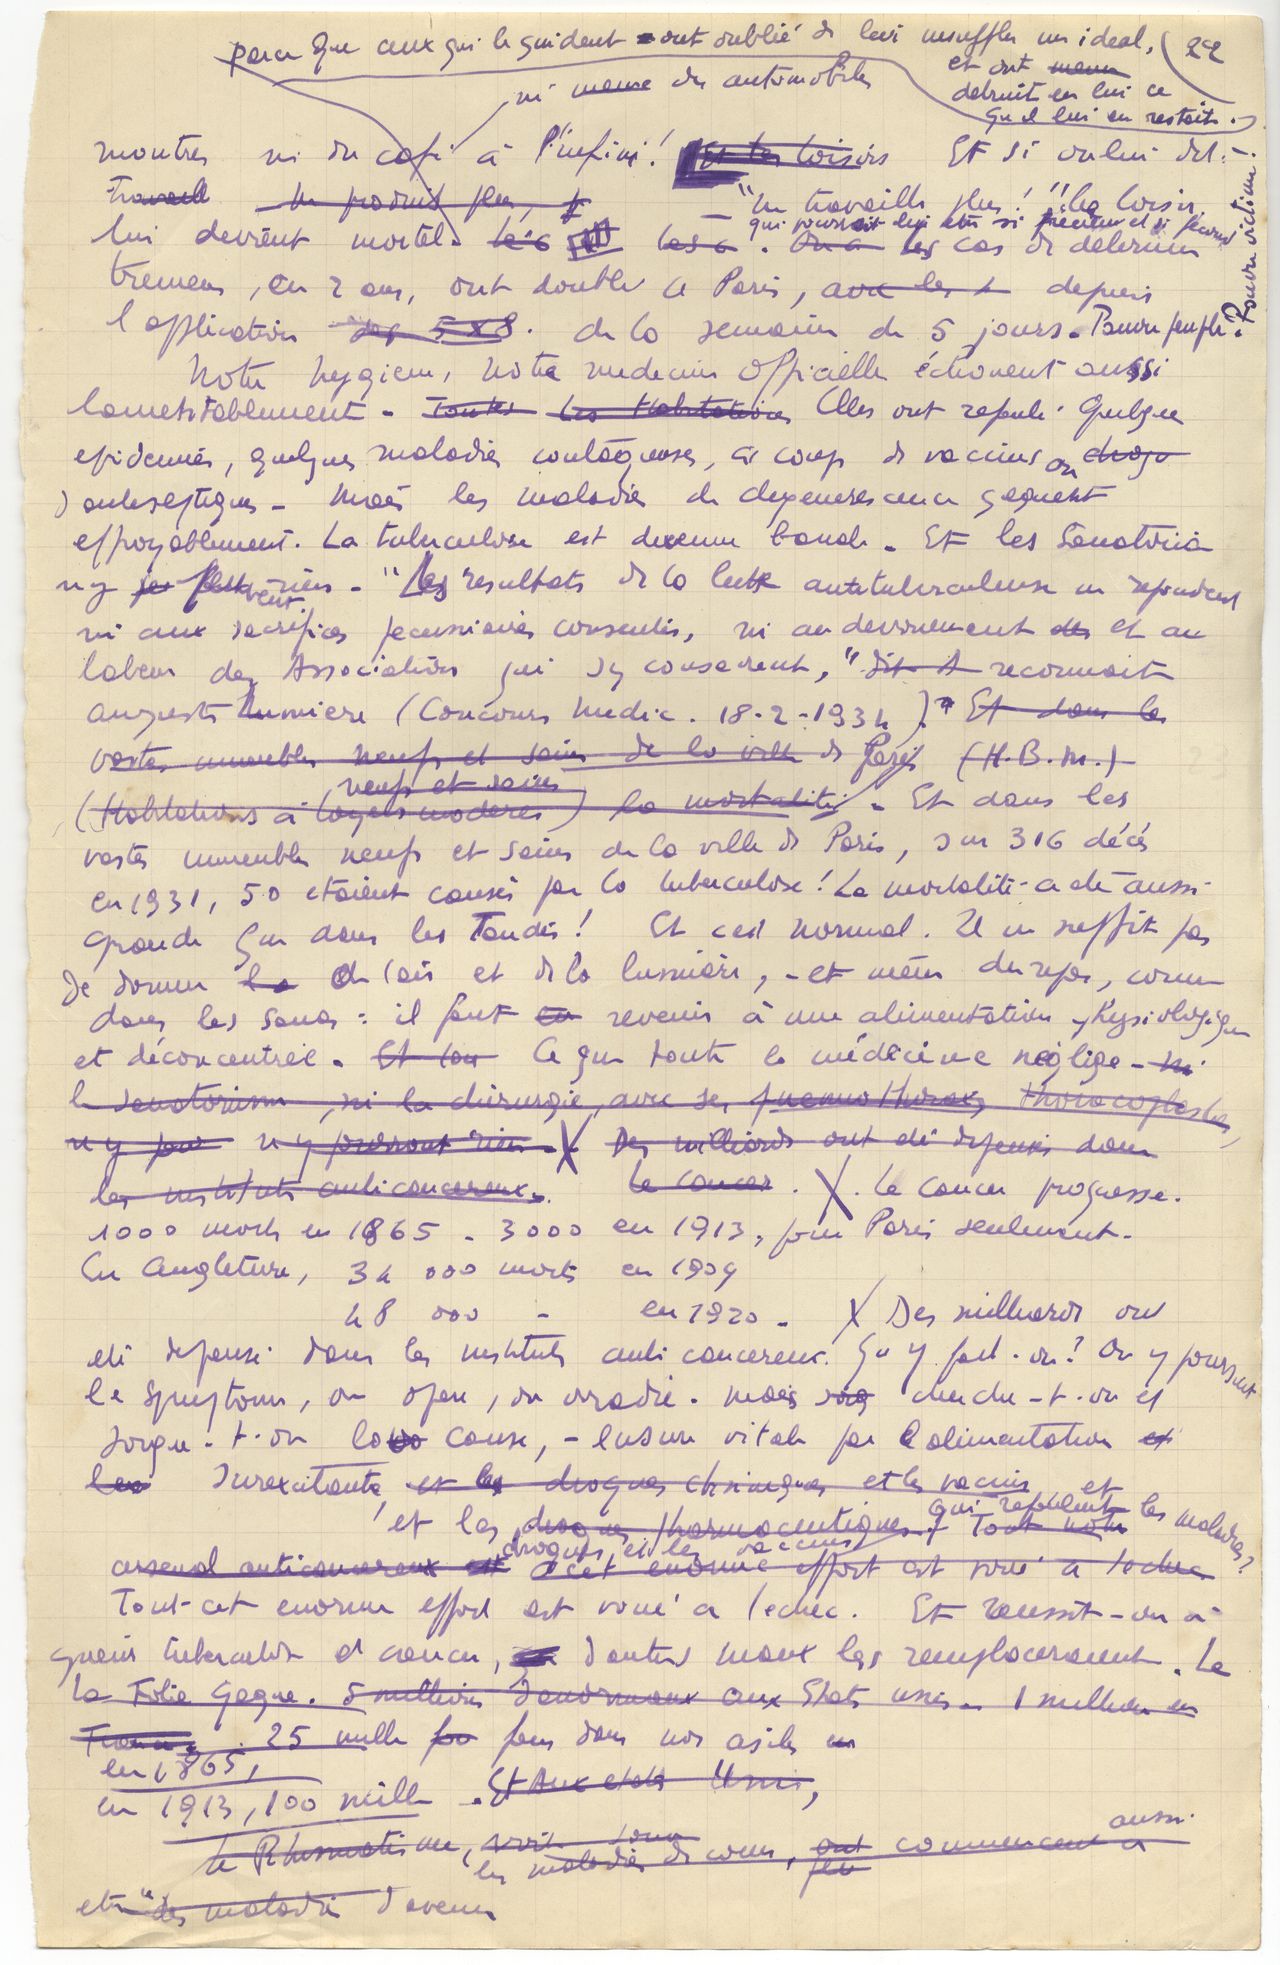 parce que ceux qui le guident ont oublié de leur insuffler un idéal,
22
et ont meme
detruit en lui ce
qu il lui en restait.
ni meme des automobiles
montres ni du café à l'infini! Et les loisirs Et si on lui dit:-
travaill On produit plus,
- "On travaille plus! "les loisirs
qui pourrait lui etre si precieux et si fecond
lui devient mortel. les cas de delirium
tremens, en 2 ans, ont doublé a Paris, avec les depuis
l'application des 5x8. de la semaine de 5 jours. Pauvre peuple.
Pauvre victime.
Notre hygiene, notre medecine officielle échouent aussi
lamentablement - Toutes Les Habitations Elles ont repoulé quelques
epidemies, quelques maladies contagieuses, à coups de vaccins ou drogu
d antiseptiques - Mais les maladies de degenerescence gagnent
effroyablement. La tuberculose est devenue banale. Et les Sanatoria
n y peuvent rien - "Les resultats de la lutte antituberculeuse ne repondent
ni aux sacrifices pecuniaires consentis, ni au devouement des et au
labeur des Associations qui s'y consacrent," dit A reconnait
Auguste Lumiere (Concours Medic. 18-2-1934)." Et dans les
vastes immeubles neufs et sains de la ville de Paris (H.B.M.)
neufs et sains
(Habitations à loyers moderes) la mortalité - Et dans les
vastes immeubles neufs et sains de la ville de Paris, sur 316 décés
en 1931, 50 etaient causés par la tuberculose! La mortalité a été aussi
grande que dans les Taudis! Et c'est normal. Il ne suffit pas
de donner de l'air et de la lumière, - et même du repos, comme
dans les sanas: il faut en revenir à une alimentation physiologique
et déconcentrée. Et tou Ce que toute la médecine néglige - Ni
le sanatorium, ni la chirurgie, avec ses pneumothorax, thoracoplasties,
n y pour n y pourront rien. X Des milliards ont été depensés dans
les instituts anticancereux. Le cancer. X. Le cancer progresse.
1000 morts en 1865 - 3000 en 1913, pour Paris seulement.
En Angleterre, 34 000 morts en 1909
48 000 - en 1920 - X Des milliards ont
eté depensé dans les instituts anti cancereux. Qu'y fait-on? On y poursuit
le symptome, on opere, on irradie. Mais cherche-t-on et
soigne-t-on la cause, - l'usure vitale par l'alimentation et
les surexcitante, et les drogues chimiques et les vaccins et
et les drogues pharmaceutiques. Tout notre
qui repoulent les maladies?
drogues et les vaccins
arsenal anticancereux est cet enorme effort est voué a l'echec
Tout cet enorme effort est voué a l'echec. Et reussit-on à
guerir tuberculose et cancer, d'autres maux les remplaceraient. La
La Folie gagne. 5 millions d'anormaux aux Etats unis. 1 million en
France. 25 mille fous dans nos asiles
en 1865,
en 1913, 100 mille. Et Aux etats Unis,
Le Rhumatisme, les maladies de coeur, ont commencent aussi a
etre "des maladie d'avenir